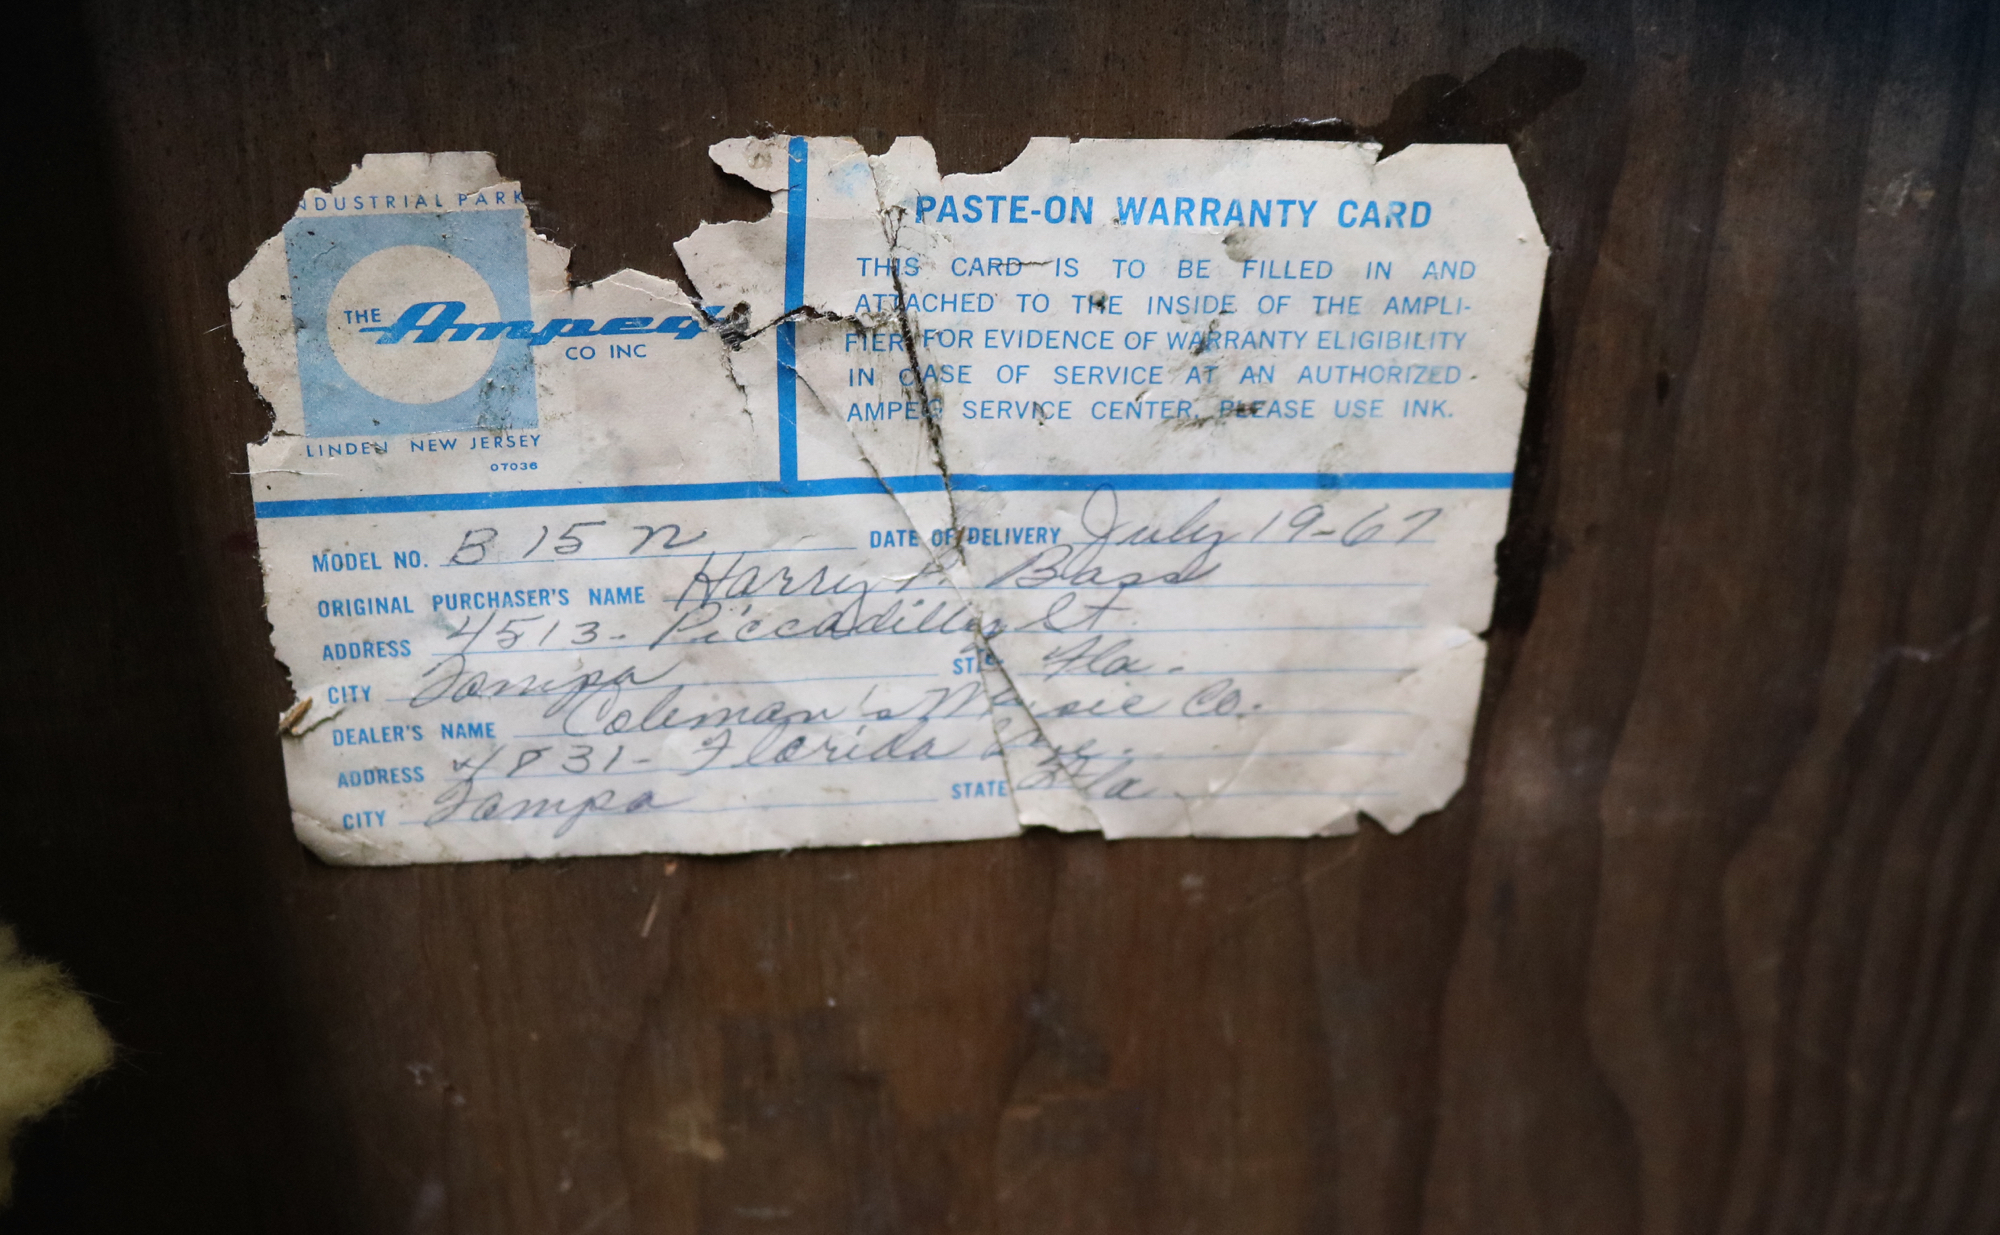 INDUSTRIAL PARK
THE Ampeg
CO INC
LINDEN NEW JERSEY
07036
PASTE-ON WARRANTY CARD
THIS CARD IS TO BE FILLED IN AND
ATTACHED TO THE INSIDE OF THE AMPLI-
FIER FOR EVIDENCE OF WARRANTY ELIGIBILITY
IN CASE OF SERVICE AT AN AUTHORIZED
AMPEG SERVICE CENTER, PLEASE USE INK.
MODEL NO. B 15 N DATE OF DELIVERY July 19-67
ORIGINAL PURCHASER'S NAME Harry P. Bass
ADDRESS 4513- Piccadilly St.
CITY Tampa STATE Fla.
DEALER'S NAME Coleman's Music Co.
ADDRESS 4831- Florida Ave.
CITY Tampa STATE Fla.